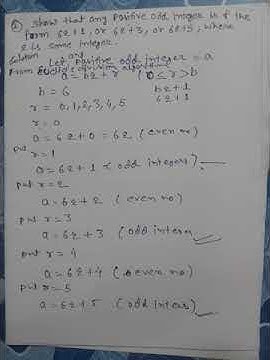 show that any positive odd integer is of the
form 6q+1, or 6q+3, or 6q+5, where
q is some integer.
Solution
Let positive odd integer = a
From Euclid's
a = bq + r (0 ≤ r > b
b = 6 bq + 1
r = 0, 1, 2, 3, 4, 5 6q+1
r = 0
a = 6q+0 = 6q (even no)
put
r = 1
a = 6q+1 (odd integers)
put r = 2
a = 6q+2 (even no)
put r = 3
a = 6q+3 (odd
put r = 4
a = 6q+4 (even no)
put r = 5
a = 6q+5 (odd